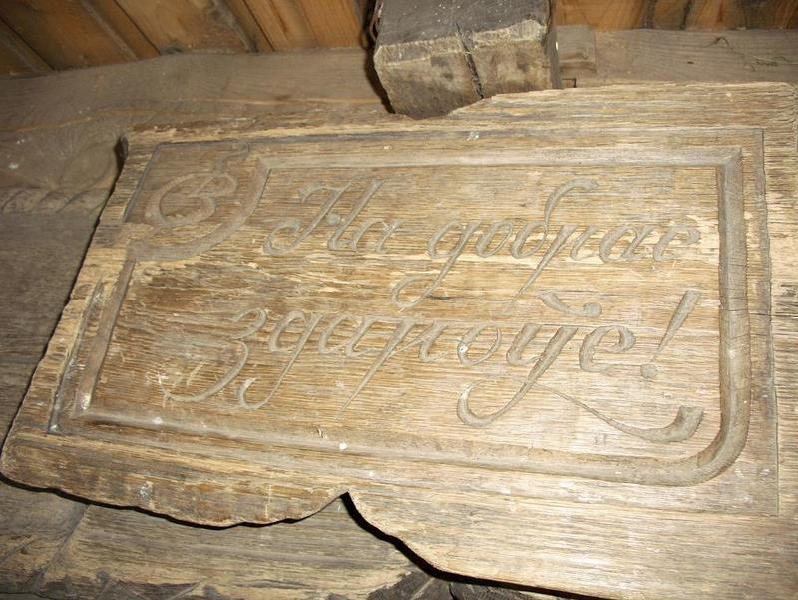 На добрае
здароўе!